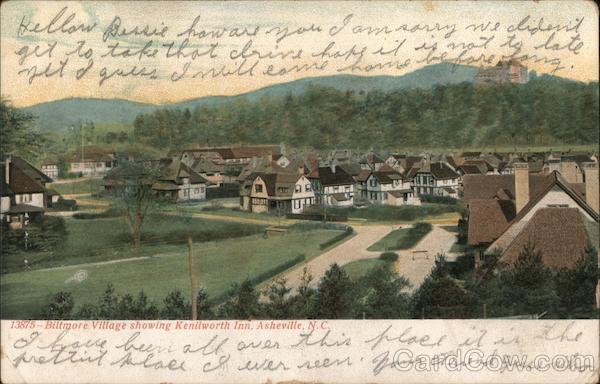 Hellow Bessie how are you I am sorry we dident
get to take that drive hope it is not to late
yet I guess I will come home before long
13875 - Biltmore Village showing Kenilworth Inn, Asheville, N. C.
I have been all over this place it is the
prettiest place I ever seen. your
CardCow.com